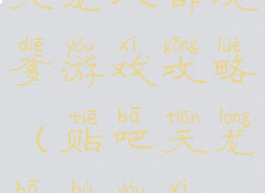 diē yóu xì gōng lüè
爹游戏攻略
tiē bā tiān lóng
（贴吧天龙
bā bù yóu xì